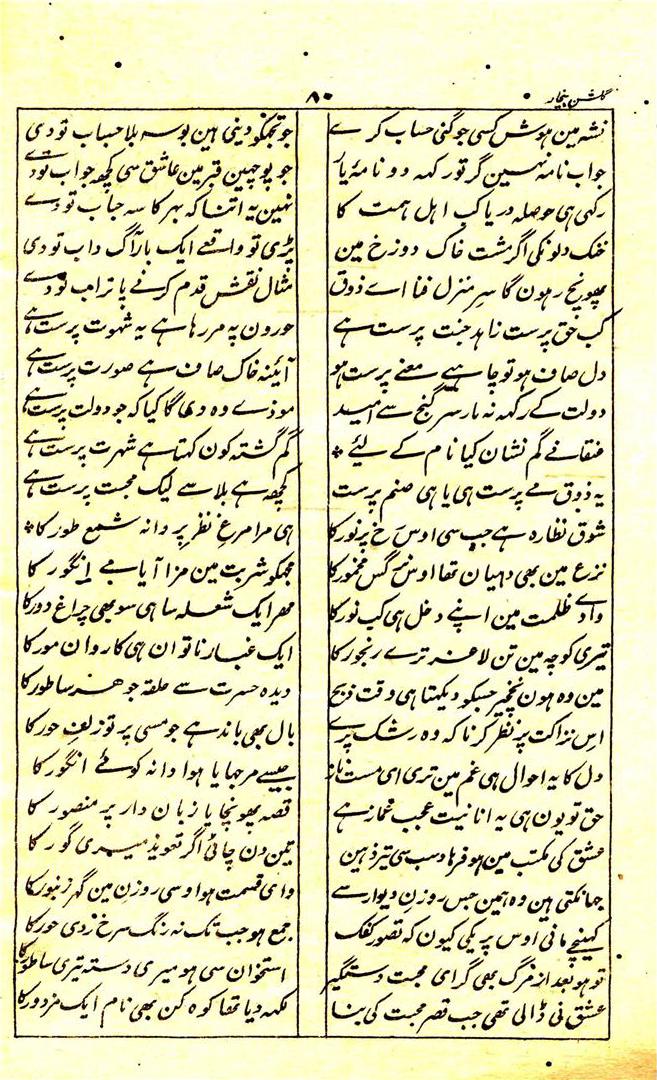 گلشن بیخار
۸۰
نشہ مین ہوش کسی جو گنی حساب کرے جو تجھکو دینی ہین بوسہ بلا حساب تو دی
جواب نامہ نہین گر تو رکھہ دو نامۂ یار جو پوچہین قبر مین عاشق سی کچھہ جواب تو دے
رکہی ہی حوصلہ دریا کب اہل ہمت کا نہین یہ اتنا کہ بہر کاسہ حباب تو دے
خنک دلونکی اگر مشت خاک دوزخ مین پڑی تو واقعے ایک بار آگ داب تو دی
پہونچ رہون گا سر منزل فنا اے ذوق مثال نقش قدم کرنے پا تراب تو دے
کب حق پرست زاہد جنت پرست ہے حورون پہ مر رہا ہے یہ شہوت پرست ہے
دل صاف ہو تو چاہیے معنے پرست ہو آئینہ خاک صاف ہے صورت پرست ہے
دولت کے رکھہ نہ مار سر گنج سے امید موذے وہ دی گا کیا کہ جو دولت پرست ہے
عنقا نے گم نشان کیا نام کے لیئے * گم گشتہ کون کہتا ہے شہرت پرست ہے
یہ ذوق مے پرست ہی یا ہی صنم پرست کچھہ ہے بلا سے لیک محبت پرست ہے
شوق نظارہ ہے جب سی اوس رخ پر نور کا ہی مرا مرغ نظر پروانہ شمع طور کا *
نزع مین بھی دہیان تھا اوس نرگس مخمور کا مجھکو شربت مین مزا آیا مے انگور کا
وادے ظلمت مین اپنے دخل ہی کب نور کا مہر ایک شعلہ سا ہی سو بھی چراغ دور کا
تیری کوچہ مین تن لاغر ترے رنجور کا ایک غبار ناتوان ہی کاروان مور کا
مین وہ ہون نخچیر جسکو دیکہتا ہی وقت ذبح دیدہ حسرت سے حلقہ جوہر ساطور کا
اس نزاکت پر نظر کرنا کہ وہ رشک پرے بال بھی باندہے جو مسی پر تو زلف حور کا
دل کا یہ احوال ہی غم مین تری ای مست ناز جیسے مرجہایا ہوا دانہ کوئے انگور کا
حق تو یون ہی یہ انانیت عجب غماز ہے قصہ پہونچایا زبان دار پر منصور کا
عشق کی مکتب مین ہو فرہاد سب سی تیز ذہین تین دن چاٹی اگر تعویذ میری گور کا
جہانکتی ہین وہ ہمین جس روزن دیوار سے وای قسمت ہو اوسی روزن مین گہر زنبور کا
کہینچے مانی اوس پریکی کیون کہ تصویر کفک جمع ہو جب تک نہ رنگ سرخ زدی حور کا
تو ہو بعد از مرگ بھی گرای محبت دستگیر استخوان سی ہو میری دستہ تیری ساطور کا
عشق نی ڈالی تھی جب قصر محبت کی بنا لکھہ دیا تھا کوہکن بھی نام ایک مزدور کا